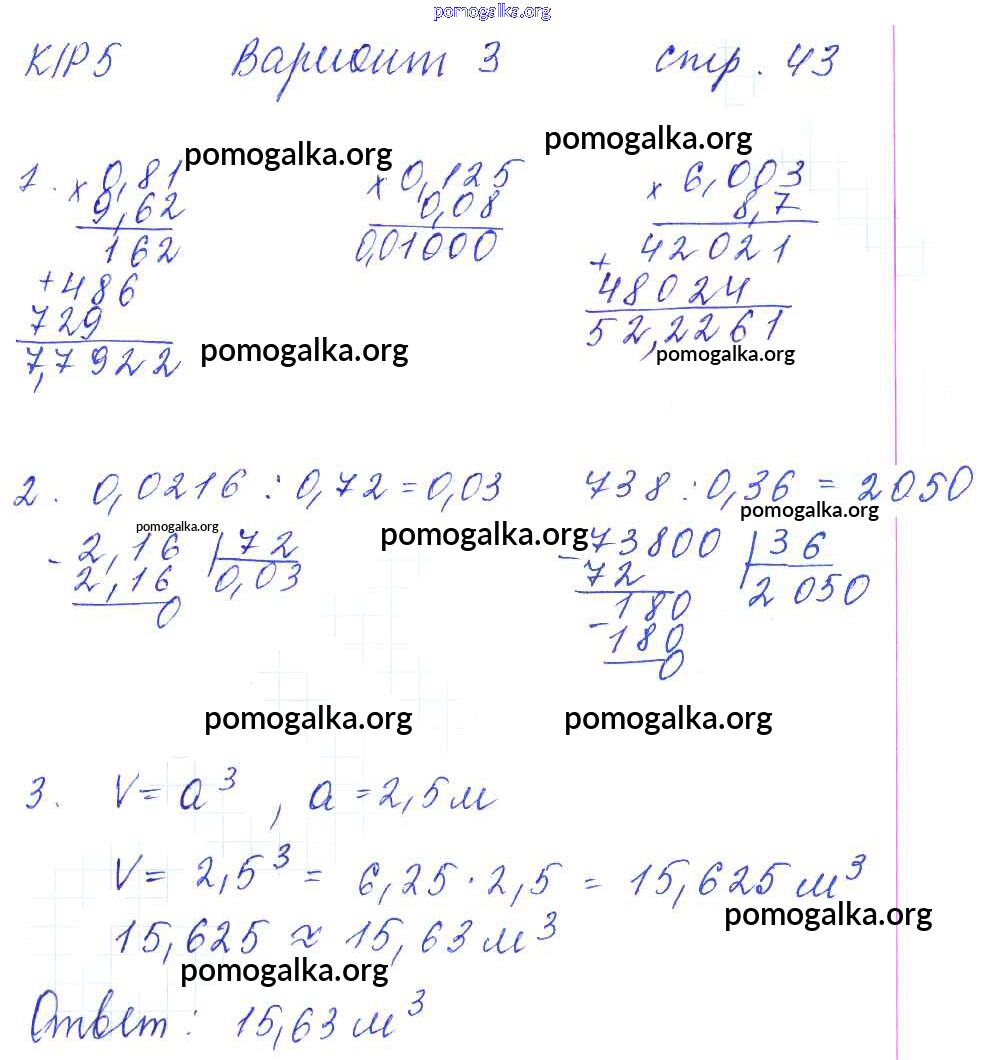 pomogalka.org
К/Р 5 Вариант 3 стр. 43
pomogalka.org pomogalka.org
1. × 0,81 × 0,125 × 6,003
9,62 0,08 8,7
162 0,01000 + 42021
+ 486 48024
729 52,2261
7,7922 pomogalka.org pomogalka.org
2. 0,0216 : 0,72 = 0,03 738 : 0,36 = 2050
pomogalka.org pomogalka.org pomogalka.org
- 2,16 72 - 73800 36
2,16 0,03 72 2050
0 - 180
180
0
pomogalka.org pomogalka.org
3. V = a³, a = 2,5 м
V = 2,5³ = 6,25 · 2,5 = 15,625 м³
pomogalka.org
15,625 ≈ 15,63 м³
pomogalka.org
Ответ: 15,63 м³